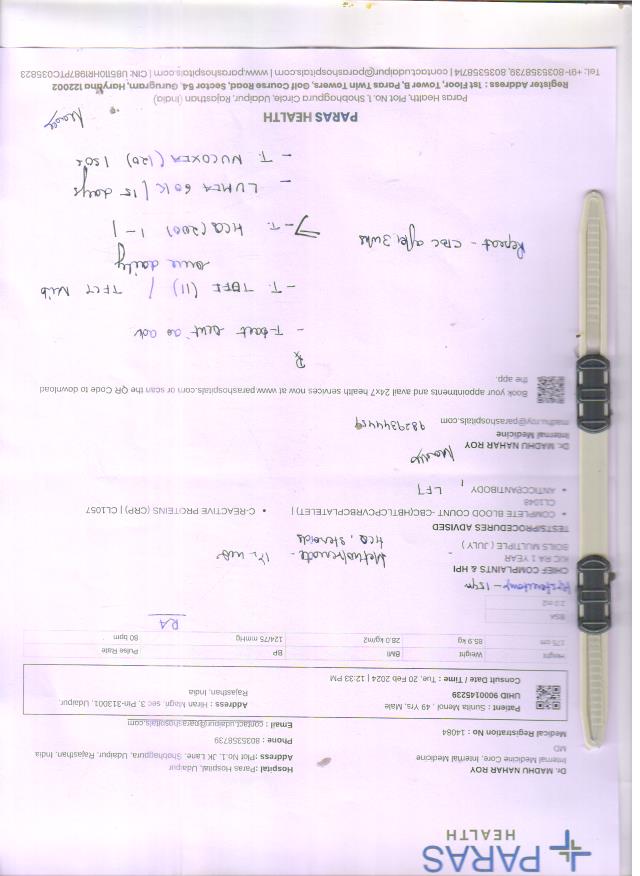 PARAS
HEALTH
Dr. MADHU NAHAR ROY
Internal Medicine Core, Internal Medicine
MD
Medical Registration No : 14084
Hospital : Paras Hospital, Udaipur
Address : Plot No 1, JK Lane, Shobhagpura, Udaipur, Rajasthan, India
Phone : 8035358739
Email : contact.udaipur@parashospitals.com
Patient : Sunita Menol , 49 Yrs, Male
UHID 9001145239
Consult Date / Time : Tue, 20 Feb 2024 | 12:33 PM
Address : Hiran Magri, sec 3, Pin-313001, Udaipur,
Rajasthan, India
Height Weight BMI BP Pulse Rate
175 cm 85.9 kg 28.0 kg/m2 124/75 mmHg 80 bpm
BSA
2.0 m2
RA
CHIEF COMPLAINTS & HPI
K/C RA 1 YEAR
BOILS MULTIPLE ( JULY )
HCQ, steroids
TESTS/PROCEDURES ADVISED
• COMPLETE BLOOD COUNT -CBC(HBTLCPCVRBCPLATELET) |
CL1048
• C-REACTIVE PROTEINS (CRP) | CL1057
• ANTICCPANTIBODY LFT
Dr. MADHU NAHAR ROY
Internal Medicine
madhu.roy@parashospitals.com
Book your appointments and avail 24x7 health services now at www.parashospitals.com or scan the QR Code to download
the app.
Rx
once daily
- T. HCQ (200) 1 - 1
Repeat - CBC after 3 wks
- LUMIA 60K / 15 days
- T. NUCOXIA (120) 1 SOS
PARAS HEALTH
Paras Health, Plot No. 1, Shobhagpura Circle, Udaipur, Rajasthan (India)
Register Address : 1st Floor, Tower B, Paras Twin Towers, Golf Course Road, Sector 54, Gurugram, Haryana 122002
Tel: +91-8035358739, 8035358714 | contact.udaipur@parashospitals.com | www.parashospitals.com | CIN: U85110HR1987PTC035823